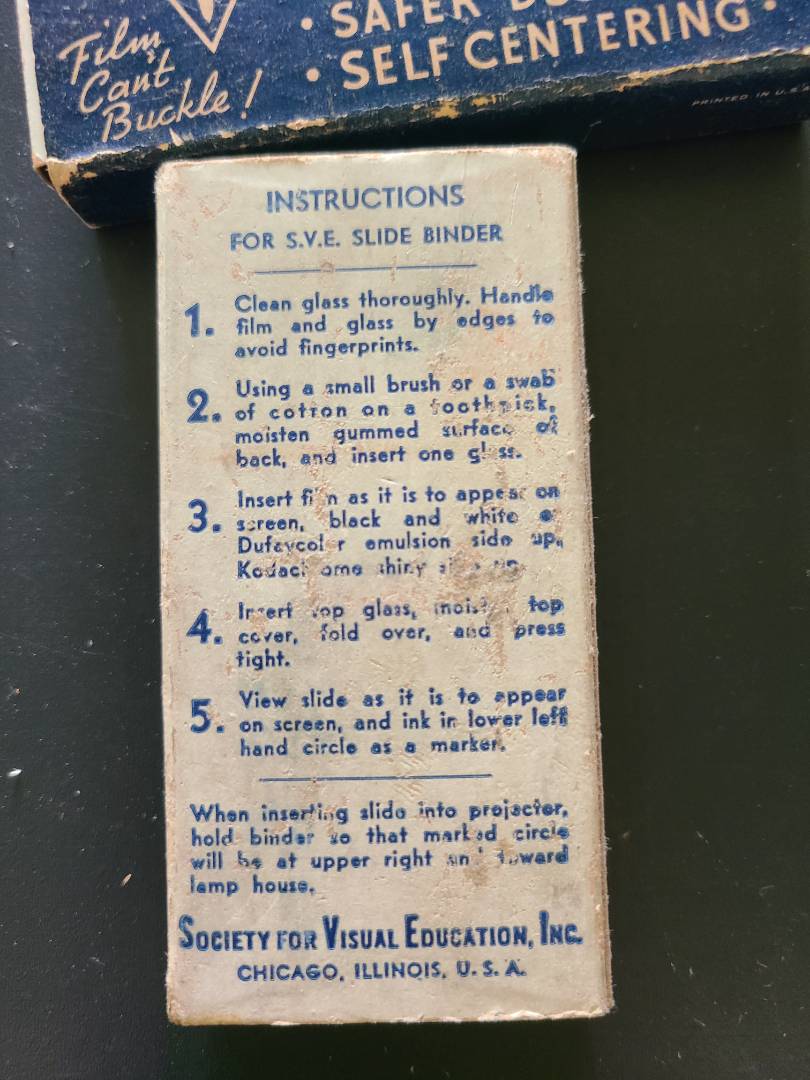 Film
Can't
Buckle!
• SAFER
• SELF CENTERING •
PRINTED IN U.S.
INSTRUCTIONS
FOR S.V.E. SLIDE BINDER
1. Clean glass thoroughly. Handle
film and glass by edges to
avoid fingerprints.
2. Using a small brush or a swab
of cotton on a toothpick,
moisten gummed surface of
back, and insert one glass.
3. Insert film as it is to appear on
screen, black and white or
Dufaycolor emulsion side up,
Kodachrome shiny side up.
4. Insert top glass, moisten top
cover, fold over, and press
tight.
5. View slide as it is to appear
on screen, and ink in lower left
hand circle as a marker.
When inserting slide into projector,
hold binder so that marked circle
will be at upper right and toward
lamp house.
SOCIETY FOR VISUAL EDUCATION, INC.
CHICAGO, ILLINOIS, U. S. A.